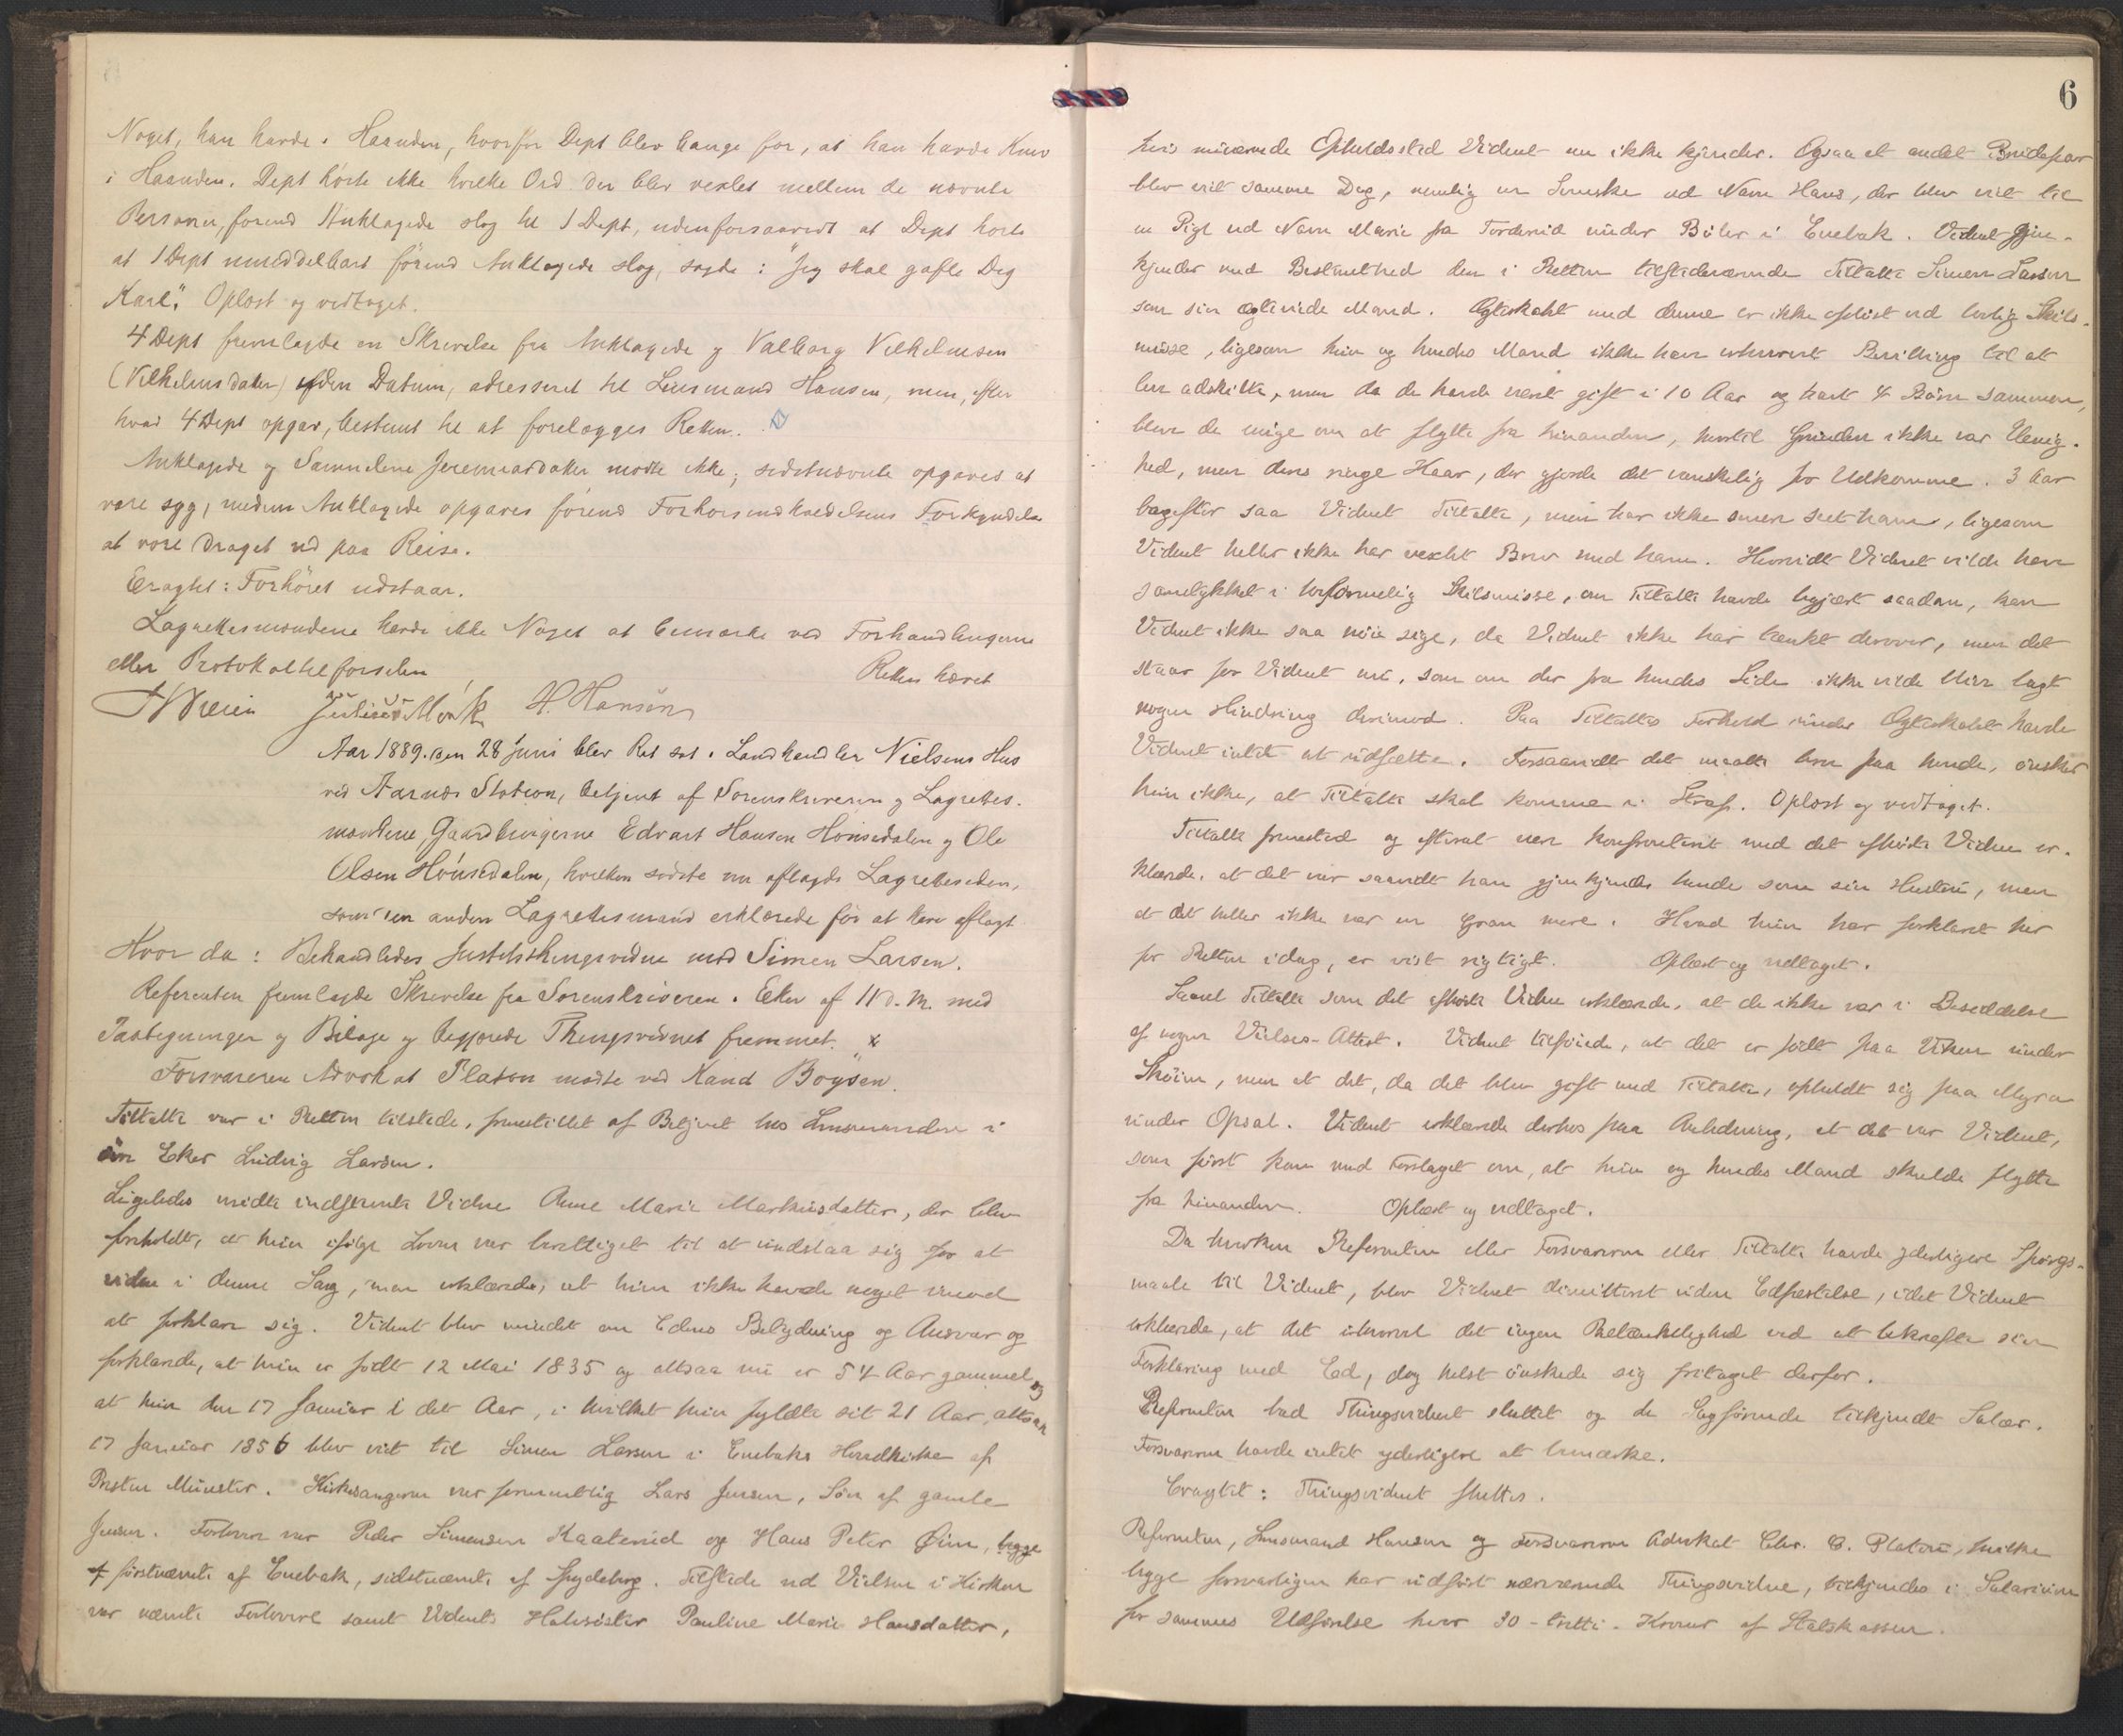 Noget, han havde i Haanden, hvorfor Dept blev bange for, at han havde Kniv
i Haanden. Dept hörte ikke hvilke Ord der blev vexlet mellem de nævnte
Personer, förend Anklagede slog til 1 Dept, uden forsaavidt at Dept hörte
at 1 Dept umiddelbart förend Anklagede slog, sagde: "Jeg skal gafle Dig
Karl". Oplæst og vedtaget.
4 Dept fremlagde en Skrivelse fra Anklagede og Valborg Vilhelmsen
(Vilhelmsdatter) uden Datum, adresseret til Lensmand Hansen, men, efter
hvad 4 Dept opgav, bestemt til at forelægges Retten.
Anklagede og Jeremiasdatter mødte ikke; sidstnævnte opgaves at
være syg, medens Anklagede opgaves förend Forhörsindkaldelsens Forkyndelse
at være draget ud paa Reise.
Eragtet: Forhöret udstaar.
Lagrettesmændene havde ikke Noget at bemærke ved Forhandlingerne
eller Protokoltilförselen
Retten hævet
Julius Mörk H. Hansen
Aar 1889. den 28 Juni blev Ret sat i Landhandler Nielsens Hus
ved Aarnæs Station, betjent af Sorenskriveren og Lagrettes-
mændene, Gaardbrugerne Edvart Hansen Hönsedalen og Ole
Olsen Hönsedalen, hvilken sidste nu aflagde Lagretteseden,
som den anden Lagrettesmand erklærede för at have aflagt.
Hvor da: Behandledes Justitsthingsvidne mod Simen Larsen.
Referenten fremlagde Skrivelse fra Sorenskriveren i Eker af 11 d. M. med
Paategninger og Bilage og begjærede Thingsvidnet fremmet. x
Forsvareren Advokat Platou mödte ved Kand Boysen.
Tiltalte var i Retten tilstede, fremstillet af Betjent hos Lensmanden i
Eker Ludvig Larsen.
Ligeledes mödte indstevnte Vidne Anne Marie Markusdatter, der blev
foreholdt, at hun ifölge Loven var berettiget til at undslaa sig for at
vidne i denne Sag, men erklærede, at hun ikke havde noget imod
at forklare sig. Vidnet blev mindet om Edens Betydning og Ansvar og
forklarede, at hun er födt 12 Mai 1835 og altsaa nu er 54 Aar gammel og
at hun den 17 Januar i det Aar, i hvilket hun fyldte sit 21 Aar, altsaa
17 Januar 1856 blev viet til Simen Larsen i Enebaks Hovedkirke af
Presten Münster. Kirkesangeren var formentlig Lars Jensen, Sön af gamle
Jensen. Forlovere var Peder Simensen Kaaterud og Hans Peter Öieren, begge
förstnævnte af Enebak, sidstnævnte af Spydeberg. Tilstede ved Vielsen i Kirken
var nævnte Forlovere samt Vidnets Halvsöster Pauline Marie Hansdatter,
6
hvis nuværende Opholdssted Vidnet nu ikke kjender. Ogsaa et andet Brudepar
blev viet samme Dag, nemlig en Svenske ved Navn Hans, der blev viet til
en Pige ved Navn Marie fra Torderud under Böler i Enebak. Vidnet gjen-
kjender med Bestemthed den i Retten tilstedeværende Tiltalte Simen Larsen
som sin ægteviede Mand. Ægteskabet med denne er ikke oplöst ved lovlig Skils-
misse, ligesom hun og hendes Mand ikke har erhvervet Bevilling til at
leve adskilte, men da de havde været gift i 10 Aar og havt 4 Börn sammen,
blev de enige om at flytte fra hinanden, hvortil Grunden ikke var Uenig-
hed, men deres ringe Kaar, der gjorde det vanskelig for Udkomme. 3 Aar
bagefter saa Vidnet Tiltalte, men har ikke senere seet ham, ligesom
Vidnet heller ikke har vexlet Brev med ham. Hvorvidt Vidnet vilde have
samtykket i lovformelig Skilsmisse, om Tiltalte havde begjært saadan, kan
Vidnet ikke saa nöie sige, da Vidnet ikke har tænkt derover, men det
staar for Vidnet nu, som om der fra hendes Side ikke vilde blive lagt
nogen Hindring derimod. Paa Tiltaltes Forhold under Ægteskabet havde
Vidnet intet at udsætte. Forsaavidt det maatte bero paa hende, önsker
hun ikke, at Tiltalte skal komme i Straf. Oplæst og vedtaget.
Tiltalte fremstod og efterat være konfronteret med det afhörte Vidne er-
klærede, at det var saavidt han gjenkjendte hende som sin Hustru, men
at det heller ikke var en Gran mere. Hvad hun har forklaret her
for Retten idag, er vist rigtigt. Oplæst og vedtaget.
Saavel Tiltalte som det afhörte Vidne erklærede, at de ikke var i Besiddelse
af nogen Vielses-Attest. Vidnet tilföiede, at det er födt paa Viken under
Sköien, men at det, da det blev gift med Tiltalte, opholdt sig paa Myra
under Opsal. Vidnet erklærede derhos paa Anledning, at det var Vidnet,
som först kom med Forslaget om, at hun og hendes Mand skulde flytte
fra hinanden. Oplæst og vedtaget.
Da hverken Referenten eller Forsvareren eller Tiltalte havde yderligere Spörgs-
maale til Vidnet, blev Vidnet dimitteret uden Edfæstelse, idet Vidnet
erklærede, at det ingen Betænkelighed ved at bekræfte sin
Forklaring med Ed, dog helst önskede sig fritaget derfor.
Referenten bad Thingsvidnet sluttet og de Sagförende tilkjendt Salær.
Forsvareren havde intet yderligere at bemærke.
Eragtet: Thingsvidnet sluttes.
Referenten, Lensmand Hansen og Forsvareren Advokat Chr. C. Platou, hvilke
begge forsvarligen har udfört nærværende Thingsvidne, tilkjendes i Salarium
for sammes Udförelse hver 30 - tretti - Kroner af Statskassen.